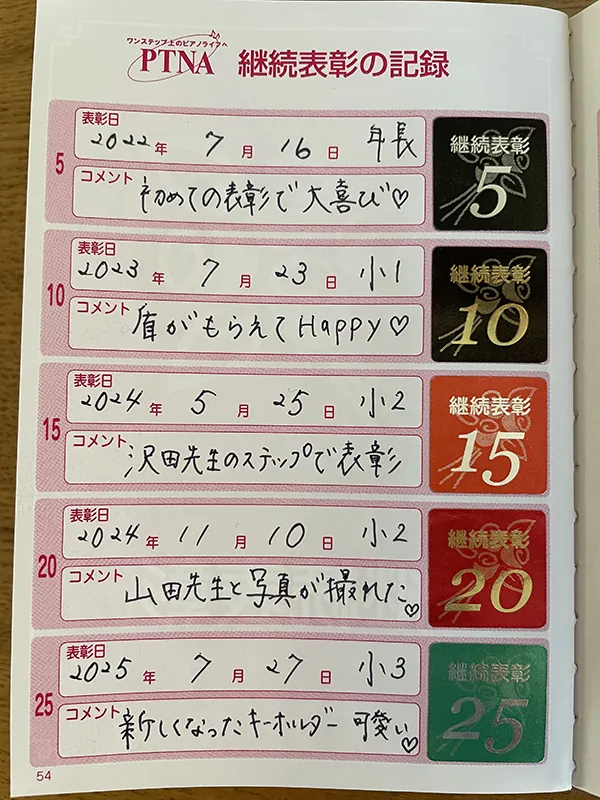 ワンステップ上のピアノライフへ
PTNA 継続表彰の記録
5
表彰日
2022年 7月 16日 年長
コメント
初めての表彰で大喜び♡
継続表彰
5
10
表彰日
2023年 7月 23日 小1
コメント
盾がもらえてHappy♡
継続表彰
10
15
表彰日
2024年 5月 25日 小2
コメント
沢田先生のステップで表彰
継続表彰
15
20
表彰日
2024年 11月 10日 小2
コメント
山田先生と写真が撮れた♡
継続表彰
20
25
表彰日
2025年 7月 27日 小3
コメント
新しくなったキーホルダー可愛い♡
継続表彰
25
54